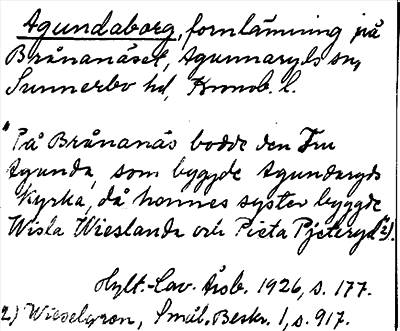 Agundaborg, fornlämning på
Brånanäset, Agunnaryds sn,
Sunnerbo hd, Kronob. l.
"På Brånanäs bodde den Fru
Agunda, som byggde Agundaryds
Kyrka, då hannes syster byggde
Wisla Wieslanda och Pieta Pjeteryd" 2).
Hylt.-Cav. Årsb. 1926, s. 177.
2) Wieselgren, Smål. Beskr. 1, s. 917.